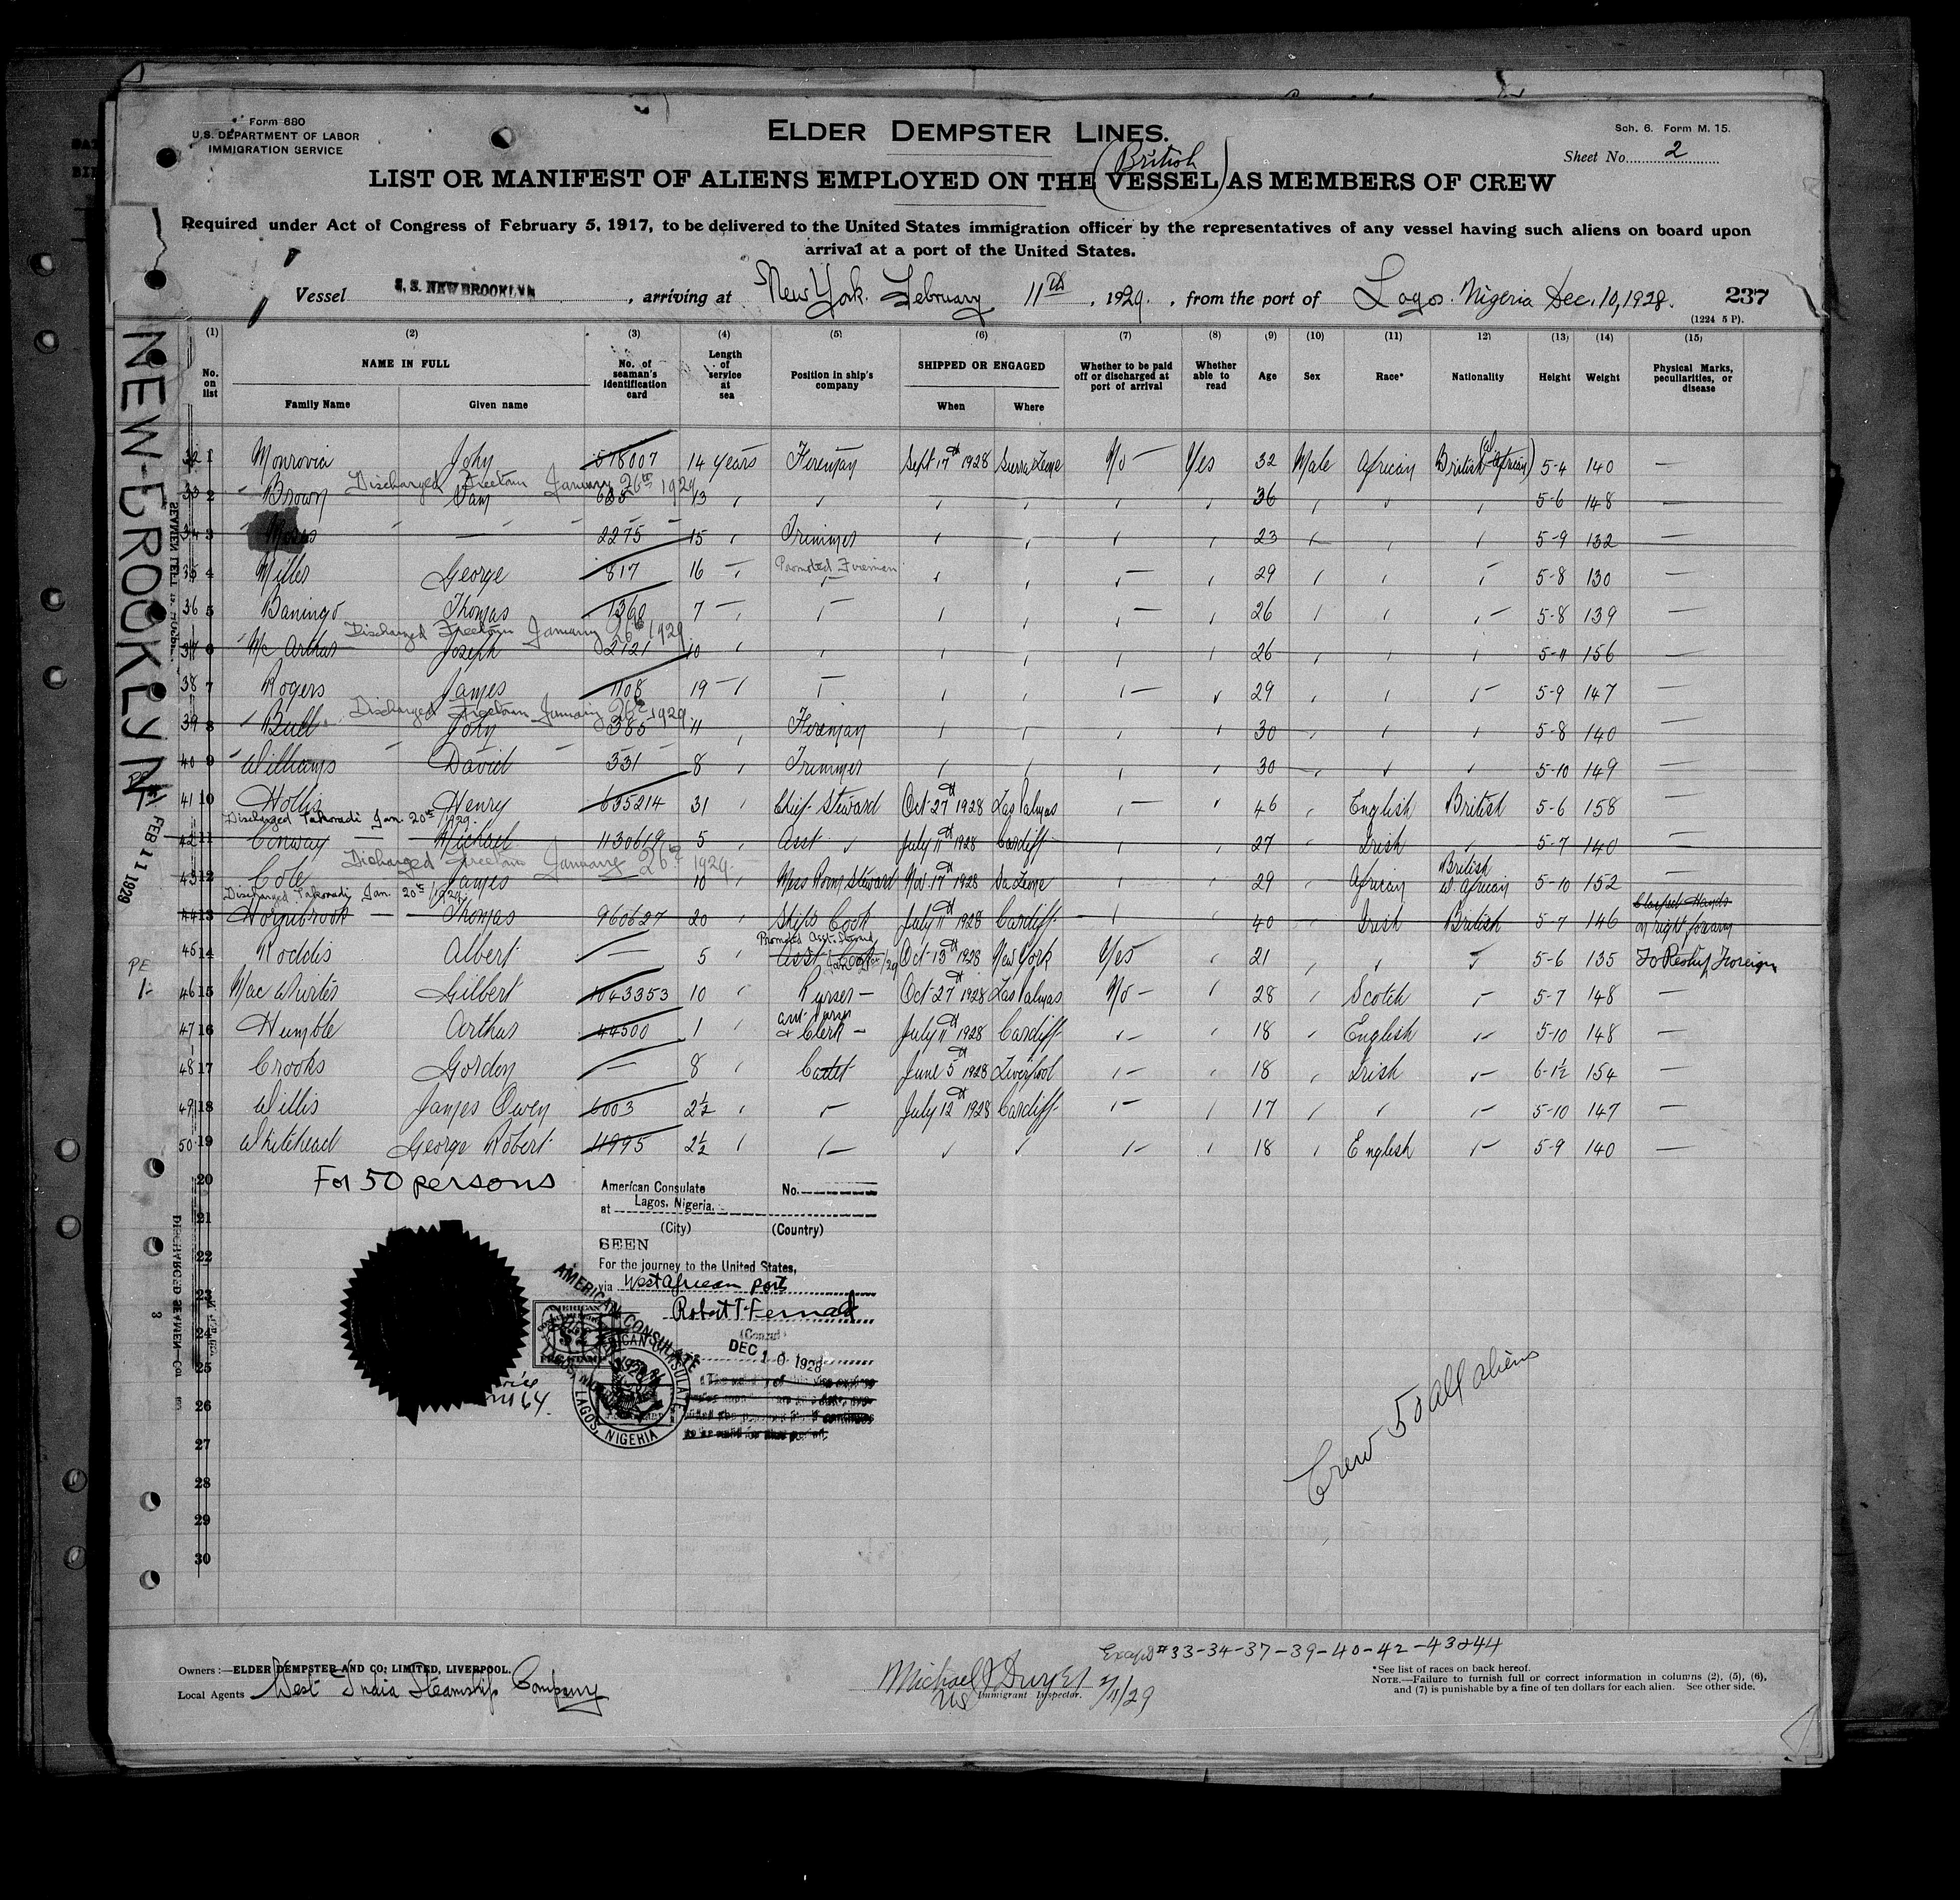 Form 680
U.S. DEPARTMENT OF LABOR
IMMIGRATION SERVICE
ELDER DEMPSTER LINES.
Sch. 6. Form M. 15.
Sheet No. 2
(British)
LIST OR MANIFEST OF ALIENS EMPLOYED ON THE VESSEL AS MEMBERS OF CREW
Required under Act of Congress of February 5, 1917, to be delivered to the United States immigration officer by the representatives of any vessel having such aliens on board upon
arrival at a port of the United States.
Vessel S. S. NEW BROOKLYN, arriving at New York. February 11th, 1929, from the port of Lagos. Nigeria Dec. 10, 1928. 237
(1224 5 P).
(1) (2) (3) (4) (5) (6) (7) (8) (9) (10) (11) 12) (13) (14) (15)
No. on list NAME IN FULL Family Name Given name No. of seaman's identification card Length of service at sea Position in ship's company SHIPPED OR ENGAGED When Where Whether to be paid off or discharged at port of arrival Whether able to read Age Sex Race* Nationality Height Weight Physical Marks, peculiarities, or disease
32 1 Monrovia John 578007 14 years Fireman Sept 17th 1928 Sierra Leone No Yes 32 Male African British (W African) 5-4 140 —
Discharged Freetown January 26th 1929
33 2 Brown Sam 13 36 5-6 148 —
34 3 Moses — 2275 15 Trimmer 23 5-9 132 —
35 4 Miller George 817 16 Promoted Fireman 29 5-8 130 —
36 5 Baningo Thomas 1360 7 26 5-8 139 —
Discharged Freetown January 26th 1929
37 6 Mc Arthur Joseph 2121 10 26 5-11 156 —
38 7 Rogers James 1108 19 29 5-9 147 —
Discharged Freetown January 26th 1929
39 8 Bull John 385 11 Fireman 30 5-8 140 —
40 9 Williams David 331 8 Trimmer 30 5-10 149 —
41 10 Hollis Henry 635214 31 Chief Steward Oct 27th 1928 Las Palmas 46 English British 5-6 158 —
Discharged Takoradi Jan. 20th 1929.
42 11 Conway Michael 1130619 5 Asst July 11th 1928 Cardiff 27 Irish 5-7 140 —
Discharged Freetown January 26th 1929.
43 12 Cole James — 10 Mess Room Steward Nov 17th 1928 Sa Leone 29 African British W. African 5-10 152 —
Discharged Takoradi Jan. 20th 1929.
44 13 Hornibrook Thomas 960627 20 Ships Cook July 11th 1928 Cardiff 40 Irish British 5-7 146 Clasped Hands on right forearm
45 14 Roddis Albert — 5 Promoted Asst. Steward Asst Cook Oct 13th 1928 New York Yes 21 5-6 135 To Reship Foreign
46 15 Mac Whirter Gilbert 1043353 10 Purser Oct 27th 1928 Las Palmas No 28 Scotch 5-7 148 —
47 16 Humble Arthur 44500 1 asst. Purser + Clerk July 11th 1928 Cardiff 18 English 5-10 148 —
48 17 Crooks Gordon — 8 Cadet June 5th 1928 Liverpool 18 Irish 6-1½ 154 —
49 18 Willis James Owen 6003 2½ July 12th 1928 Cardiff 17 5-10 147 —
50 19 Whitehead George Robert 11995 2½ 18 English 5-9 140 —
20
21
22
23
24
25
26
27
28
29
30
For 50 persons
American Consulate No.
at Lagos, Nigeria.
(City) (Country)
SEEN
For the journey to the United States,
via West African ports
Robert T. Fernald
(Consul)
DEC 10 1928
AMERICAN CONSULATE
LAGOS, NIGERIA
Crew 50 all aliens
NEW-BROOKLYN
FEB 11 1929
PE
1-
Owners:—ELDER DEMPSTER AND CO; LIMITED, LIVERPOOL.
Local Agents West India Steamship Company
#33-34-37-39-40-42-43&44
Michael J Dwyer
US Immigrant Inspector. 2/11/29
*See list of races on back hereof.
NOTE.—Failure to furnish full or correct information in columns (2), (5), (6),
and (7) is punishable by a fine of ten dollars for each alien. See other side.